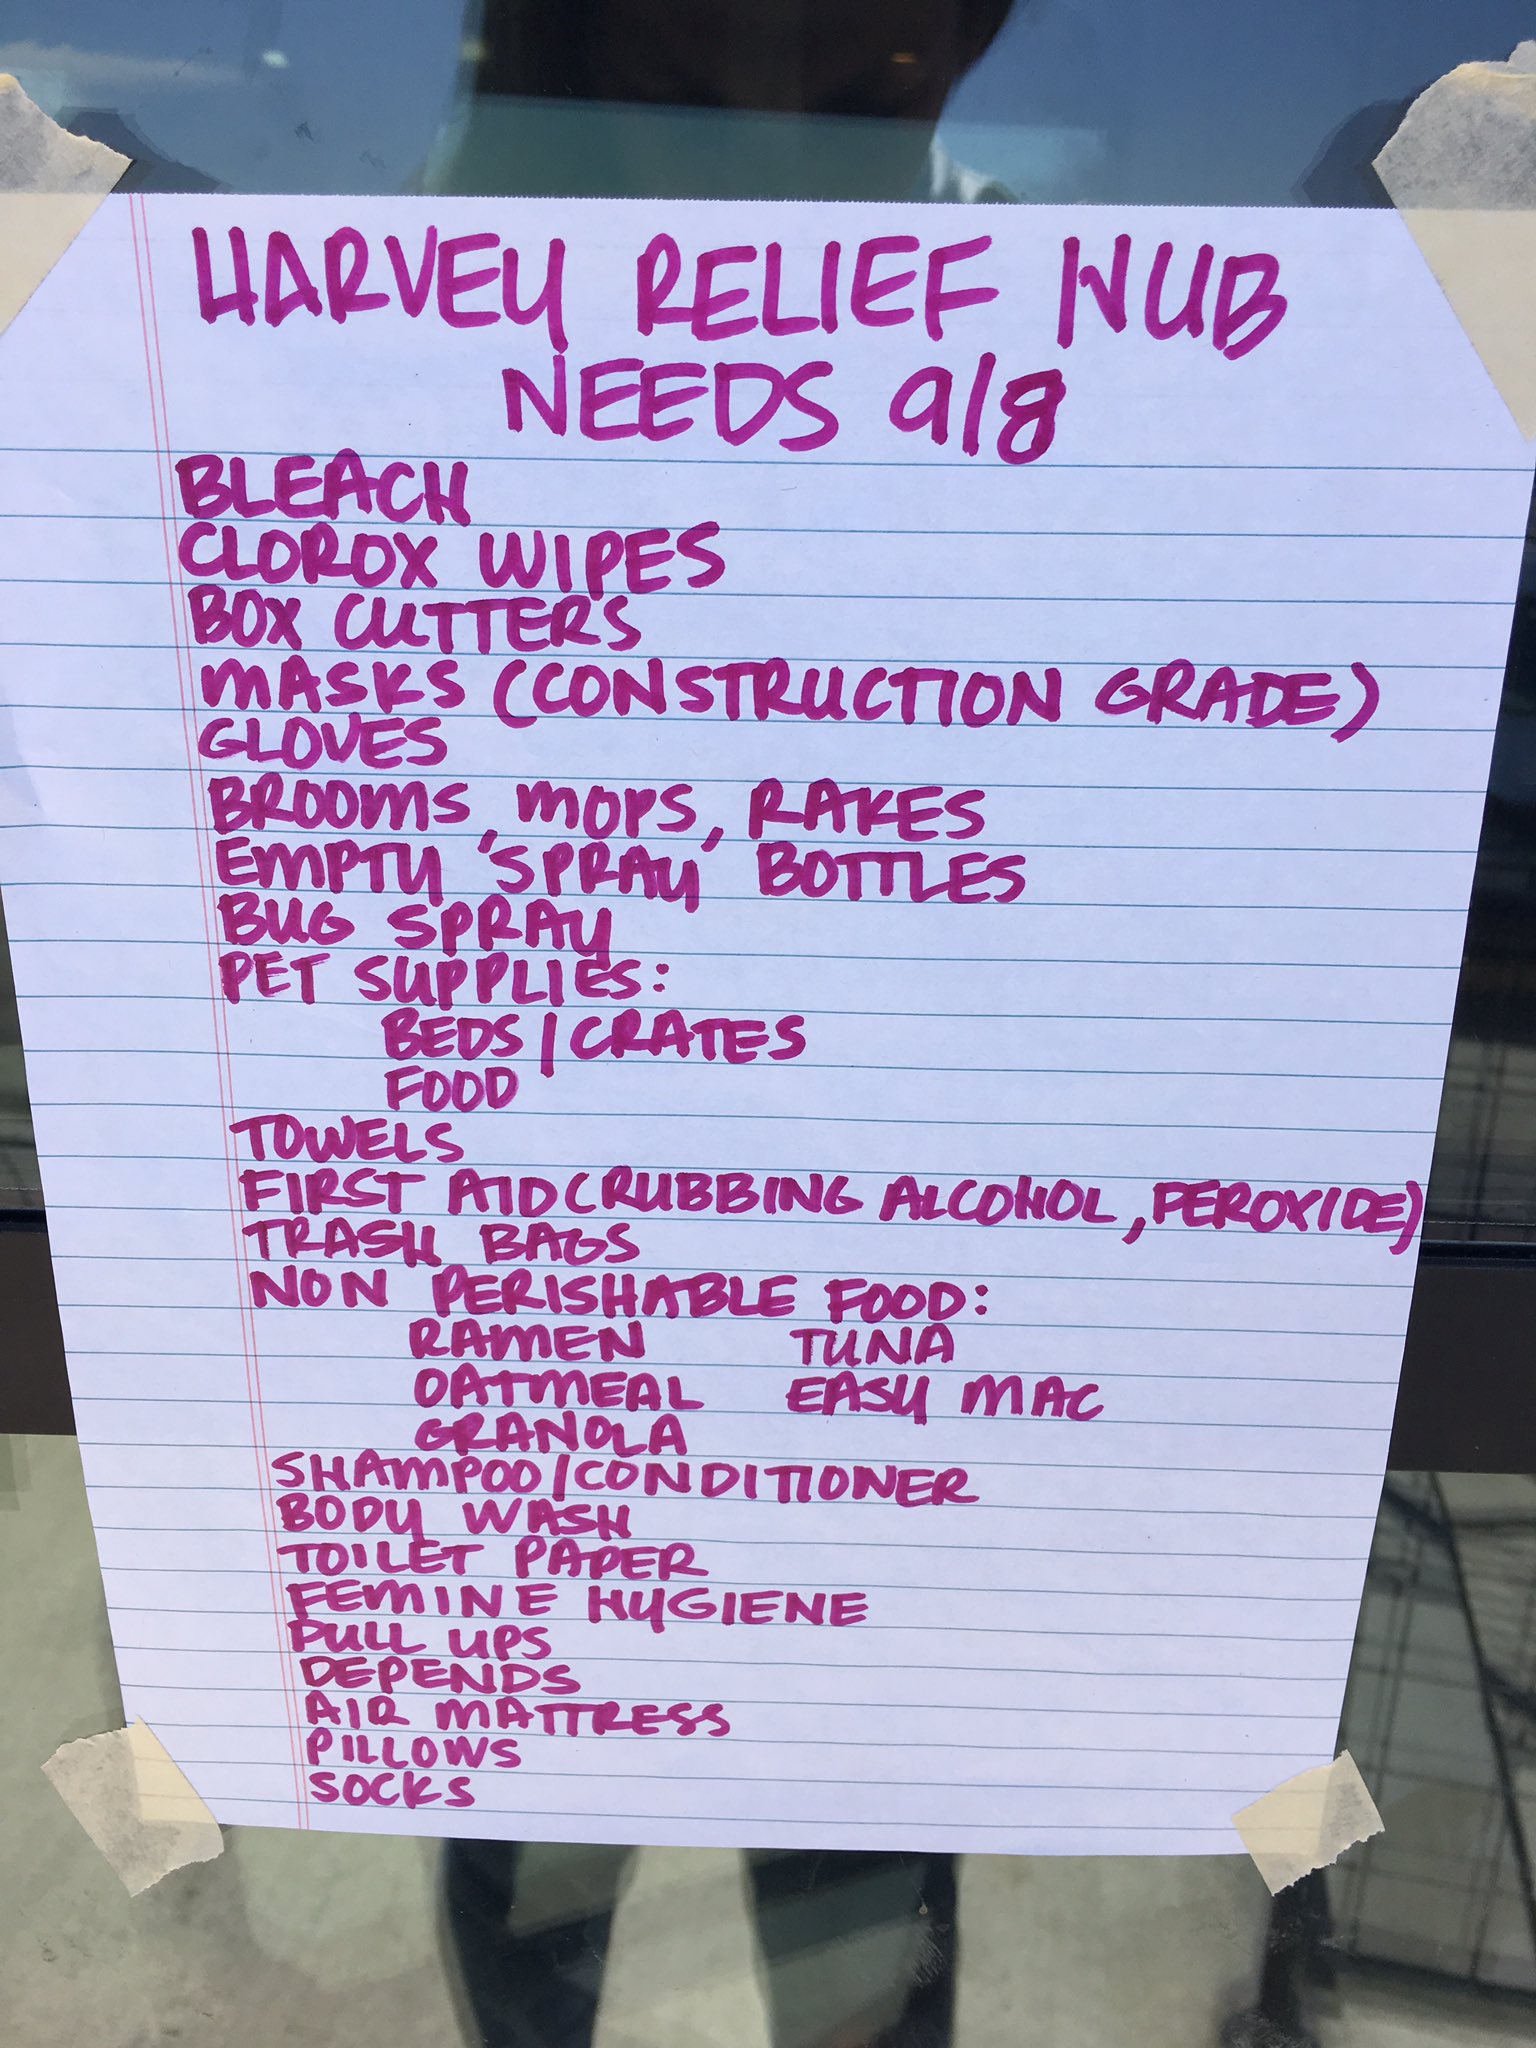 HARVEY RELIEF HUB
NEEDS 9/8
BLEACH
CLOROX WIPES
BOX CUTTERS
MASKS (CONSTRUCTION GRADE)
GLOVES
BROOMS, MOPS, RAKES
EMPTY 'SPRAY' BOTTLES
BUG SPRAY
PET SUPPLIES:
BEDS/CRATES
FOOD
TOWELS
FIRST AID (RUBBING ALCOHOL, PEROXIDE)
TRASH BAGS
NON PERISHABLE FOOD:
RAMEN TUNA
OATMEAL EASY MAC
GRANOLA
SHAMPOO/CONDITIONER
BODY WASH
TOILET PAPER
FEMINE HYGIENE
PULL UPS
DEPENDS
AIR MATTRESS
PILLOWS
SOCKS